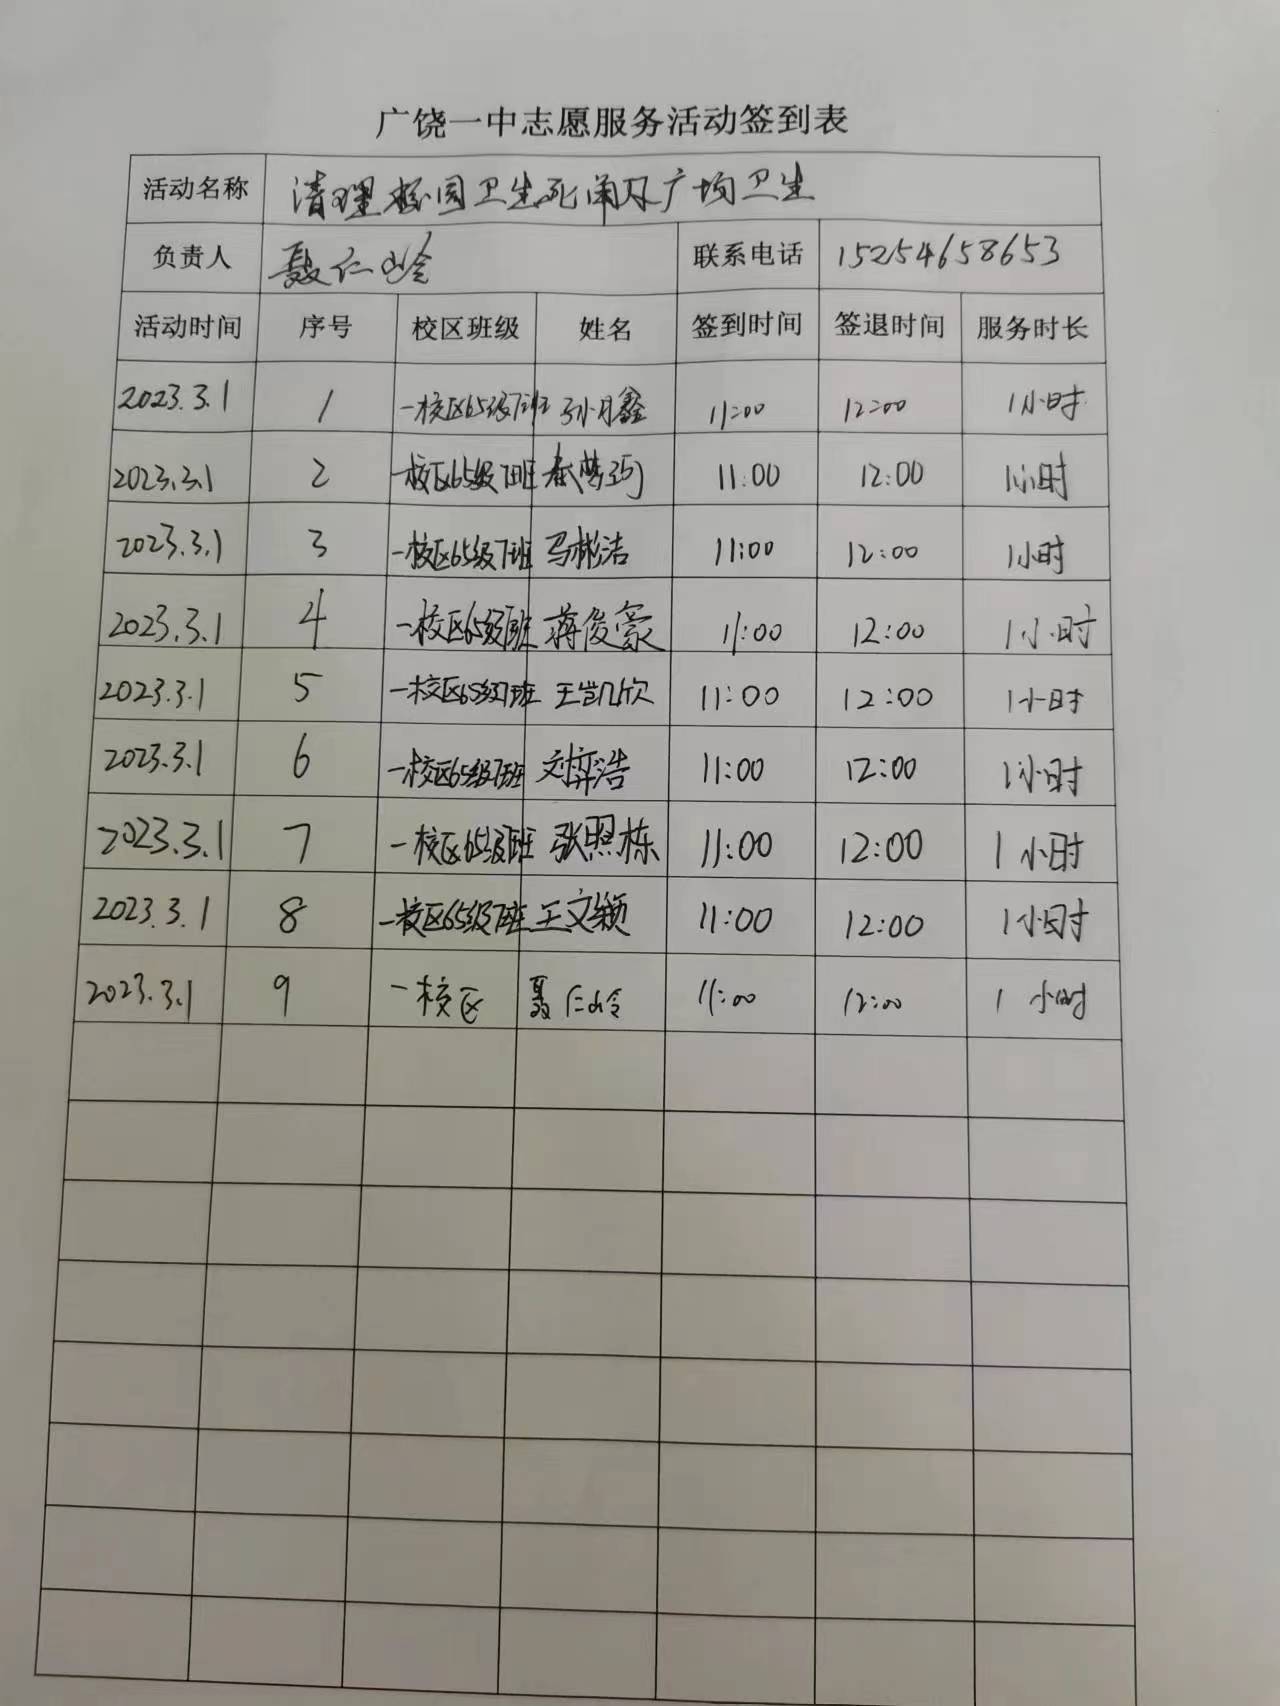 广饶一中志愿服务活动签到表
活动名称 清理校园卫生死角及广场卫生
负责人 聂仁岭 联系电话 15254658653
活动时间 序号 校区班级 姓名 签到时间 签退时间 服务时长
2023.3.1 1 一校区65级7班 孙月鑫 11:00 12:00 1小时
2023.3.1 2 一校区65级7班 11:00 12:00 1小时
2023.3.1 3 一校区65级7班 马彬洁 11:00 12:00 1小时
2023.3.1 4 一校区65级7班 蒋俊豪 11:00 12:00 1小时
2023.3.1 5 一校区65级7班 王凯欣 11:00 12:00 1小时
2023.3.1 6 一校区65级7班 刘弈浩 11:00 12:00 1小时
2023.3.1 7 一校区65级7班 张照栋 11:00 12:00 1小时
2023.3.1 8 一校区65级7班 王文颖 11:00 12:00 1小时
2023.3.1 9 一校区 聂仁岭 11:00 12:00 1小时